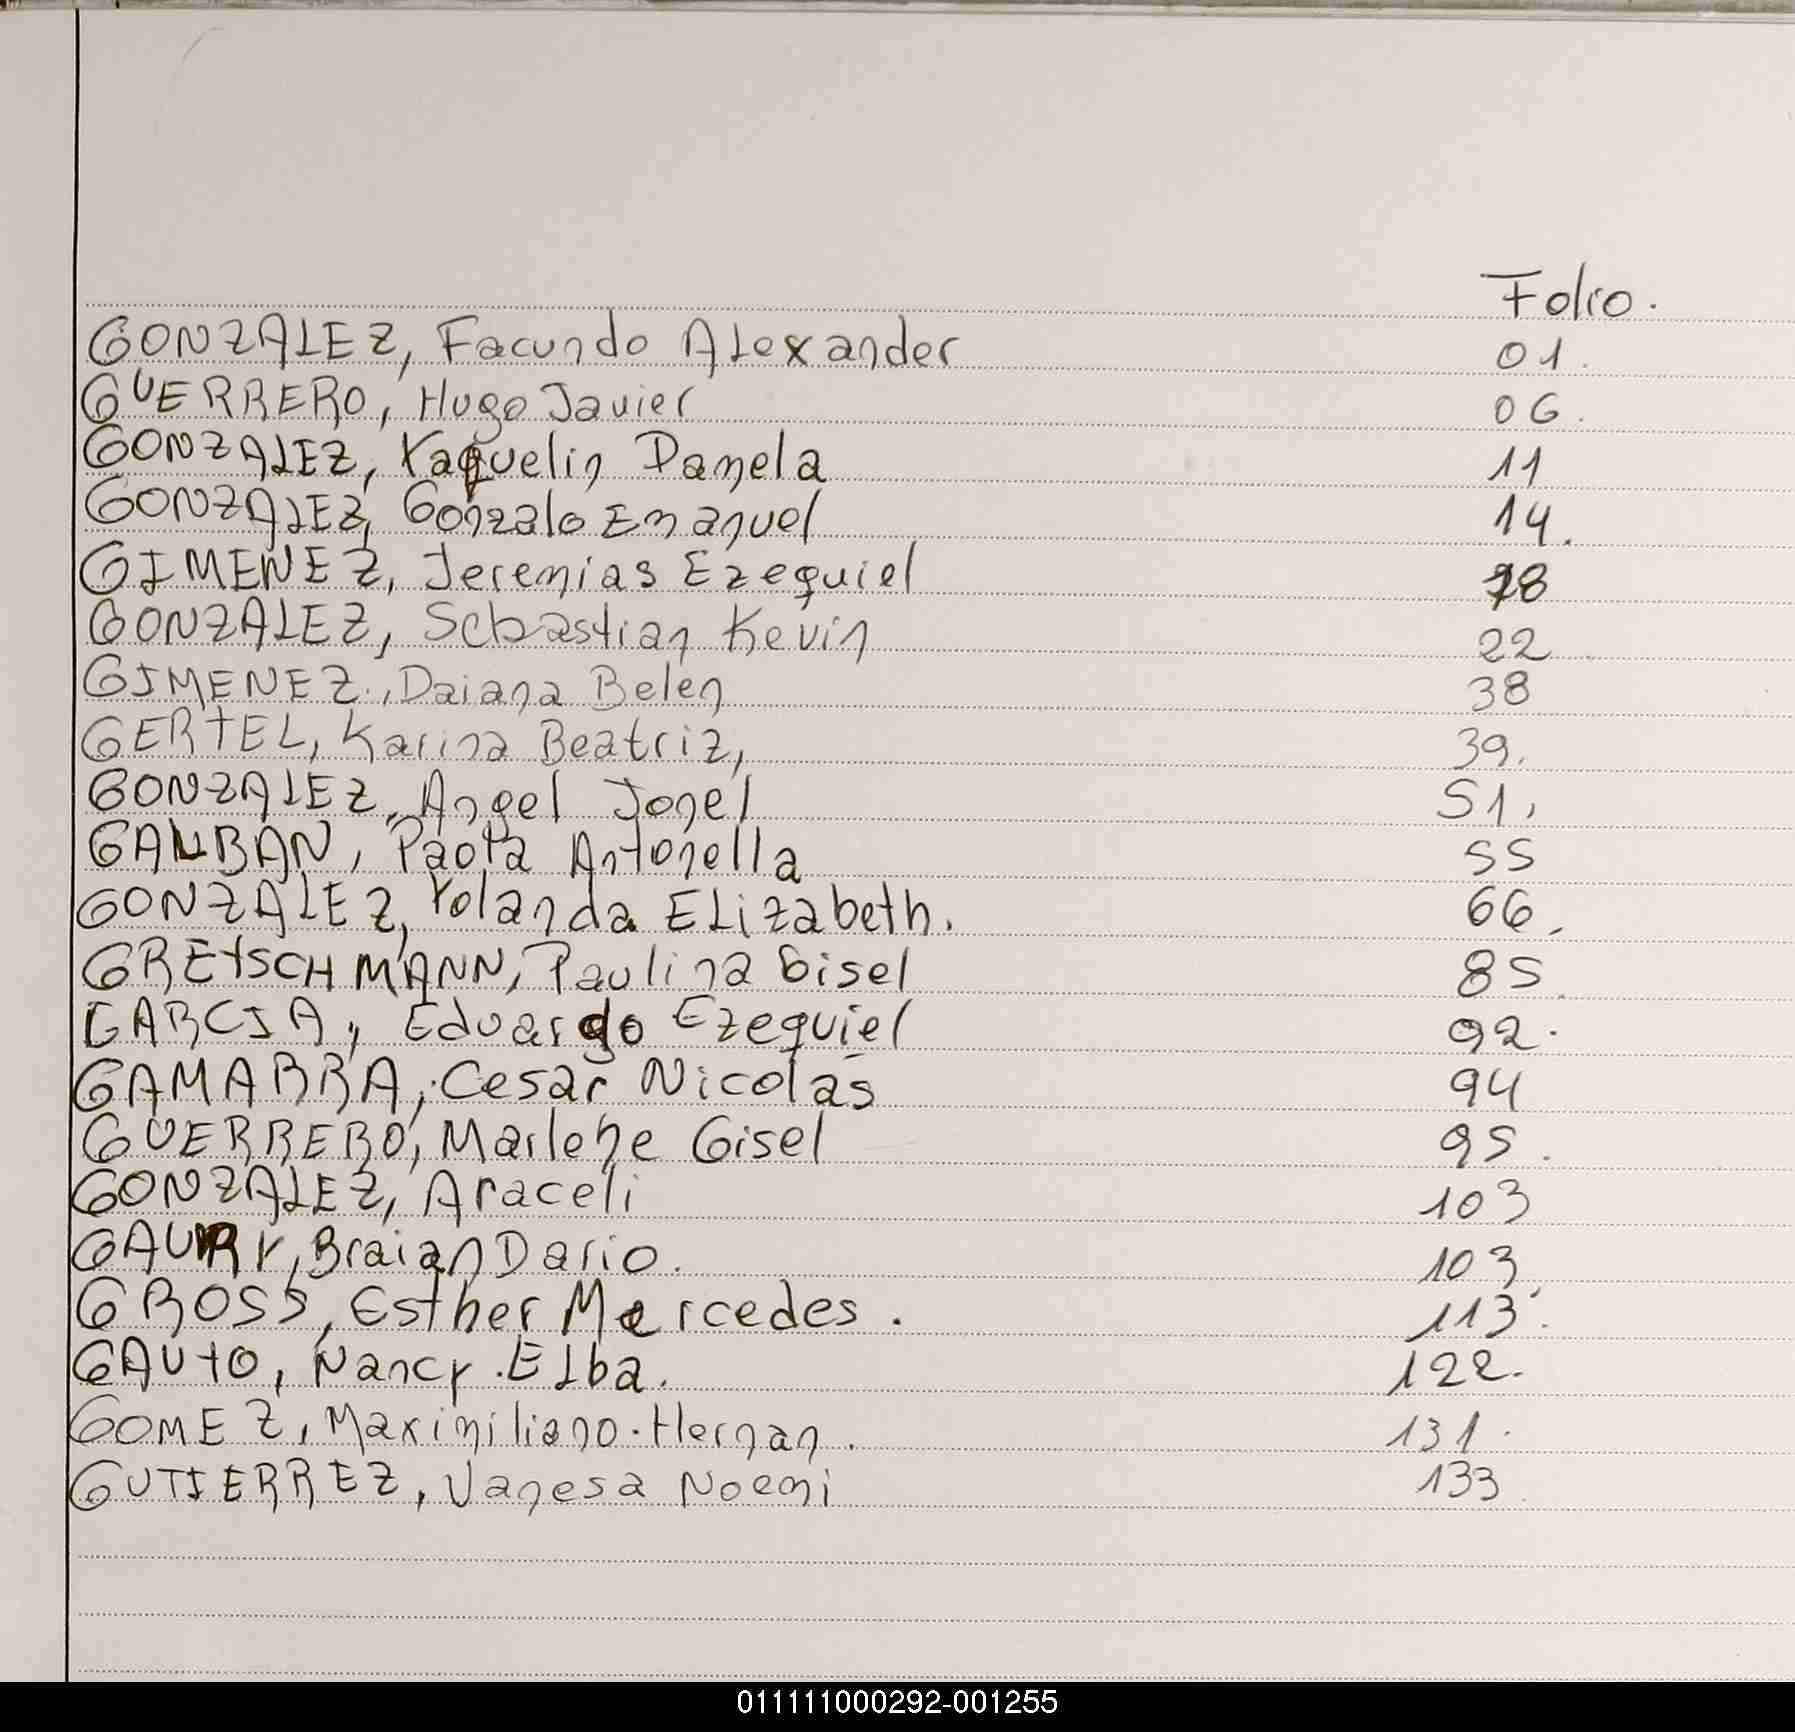 Folio.
GONZALEZ, Facundo Alexander 01.
GUERRERO, Hugo Javier 06.
GONZALEZ, Yaquelin Damela 11
GONZALEZ, Gonzalo Emanuel 14.
GIMENEZ, Jeremias Ezequiel 18
GONZALEZ, Sebastian Kevin 22
GIMENEZ, Daiana Belen 38
GERTEL, Karina Beatriz, 39.
GONZALEZ, Angel Jonel 51,
GALBAN, Paola Antonella 55
GONZALEZ, Yolanda Elizabeth. 66.
GRETSCHMANN, Paulina Gisel 85
GARCIA, Eduardo Ezequiel 92.
GAMARRA, Cesar Nicolas 94
GUERRERO, Marlene Gisel 95.
GONZALEZ, Araceli 103
Braian Dario. 103
GROSS, Esther Mercedes. 113.
GAUTO, Nancy Elba. 122.
GOMEZ, Maximiliano Hernan. 131.
GUTIERREZ, Vanesa Noemi 133
011111000292-001255